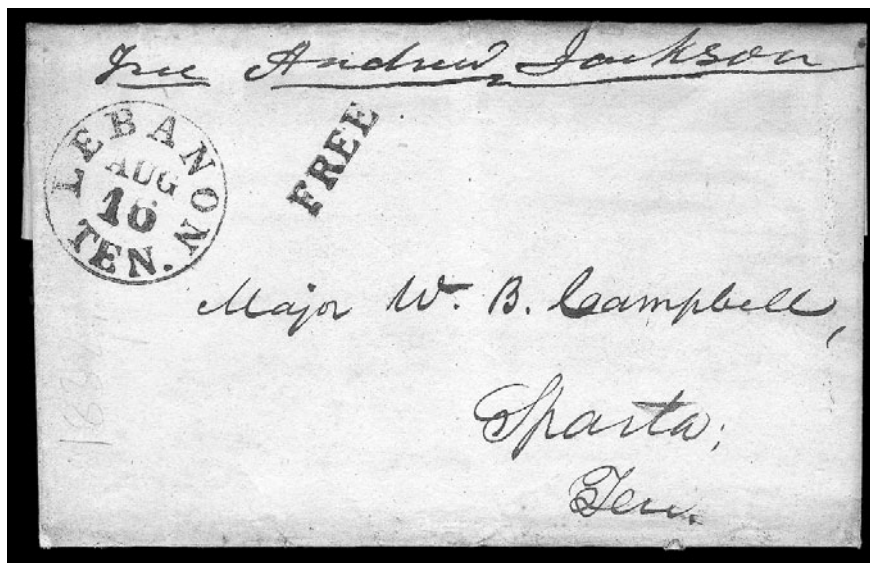 Free Andrew Jackson
LEBANON
AUG
16
TEN.
FREE
Major W. B. Campbell,
Sparta;
Ten.